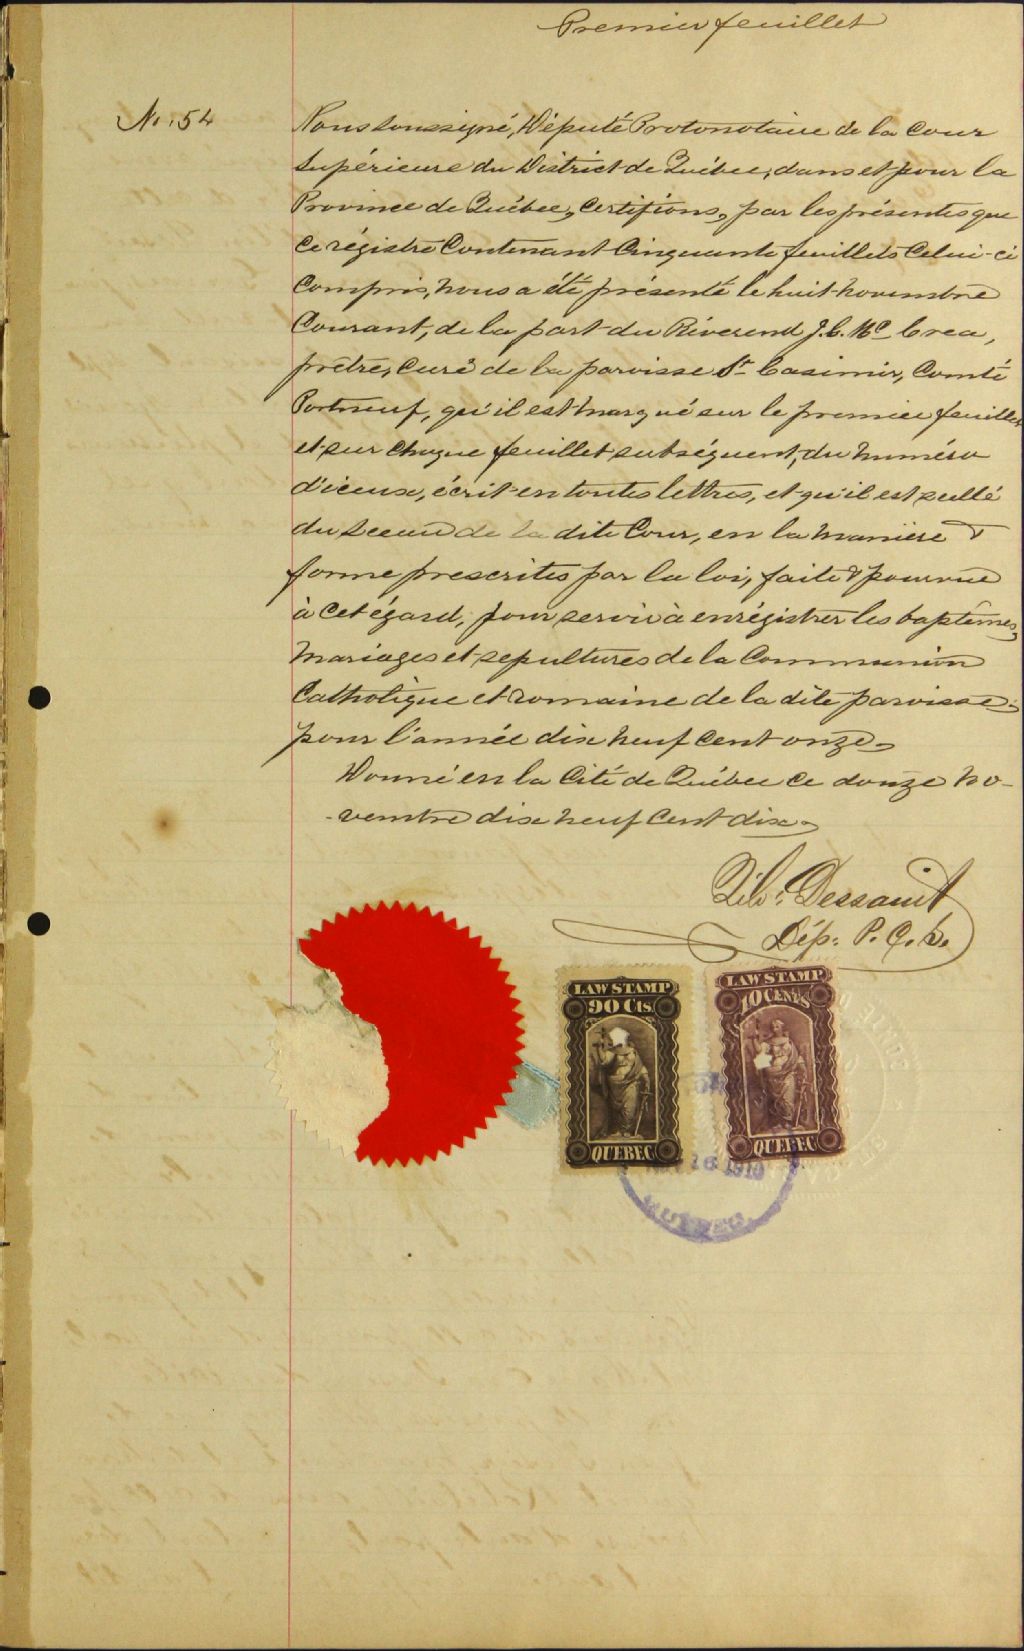 Premier feuillet
No. 54
Nous soussigné, Député Protonotaire de la Cour
Supérieure du District de Québec, dans et pour la
Province de Québec, Certifions, par les présentes que
Ce régistre Contenant Cinquante feuillets Celui-ci
Compris, nous a été présenté le huit novembre
Courant, de la part du Réverend J. C. Mc Crea,
prêtre, Curé de la paroisse St Casimir, Comté
Portneuf, qu'il est marqué sur le premier feuillet
et sur chaque feuillet subséquent, du numéro
d'iceux, écrit en toutes lettres, et qu'il est scellé
du Sceau de la dite Cour, en la manière &
forme prescrites par la loi, faite & pourvue
à cet égard, pour servir à enrégistrer les baptêmes,
Mariages et sépultures de la Communion
Catholique et romaine de la dite paroisse
pour l'année dix neuf cent onze
Donné en la Cité de Québec ce douze no-
-vembre dix neuf cent dix
Dessault
Dép. P. C. S.
LAW STAMP
90 Cts.
QUEBEC
LAW STAMP
10 CENTS
QUEBEC
1910
QUEBEC